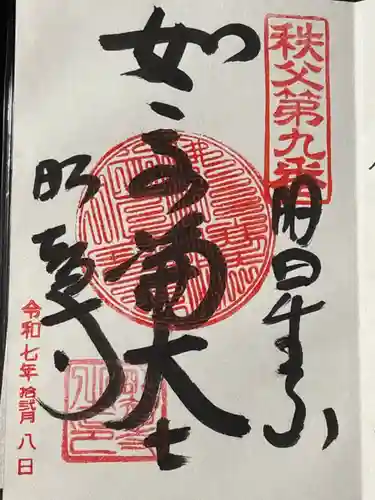 秩父第九番
明星山
如意輪大士
明智寺
令和七年拾弐月八日